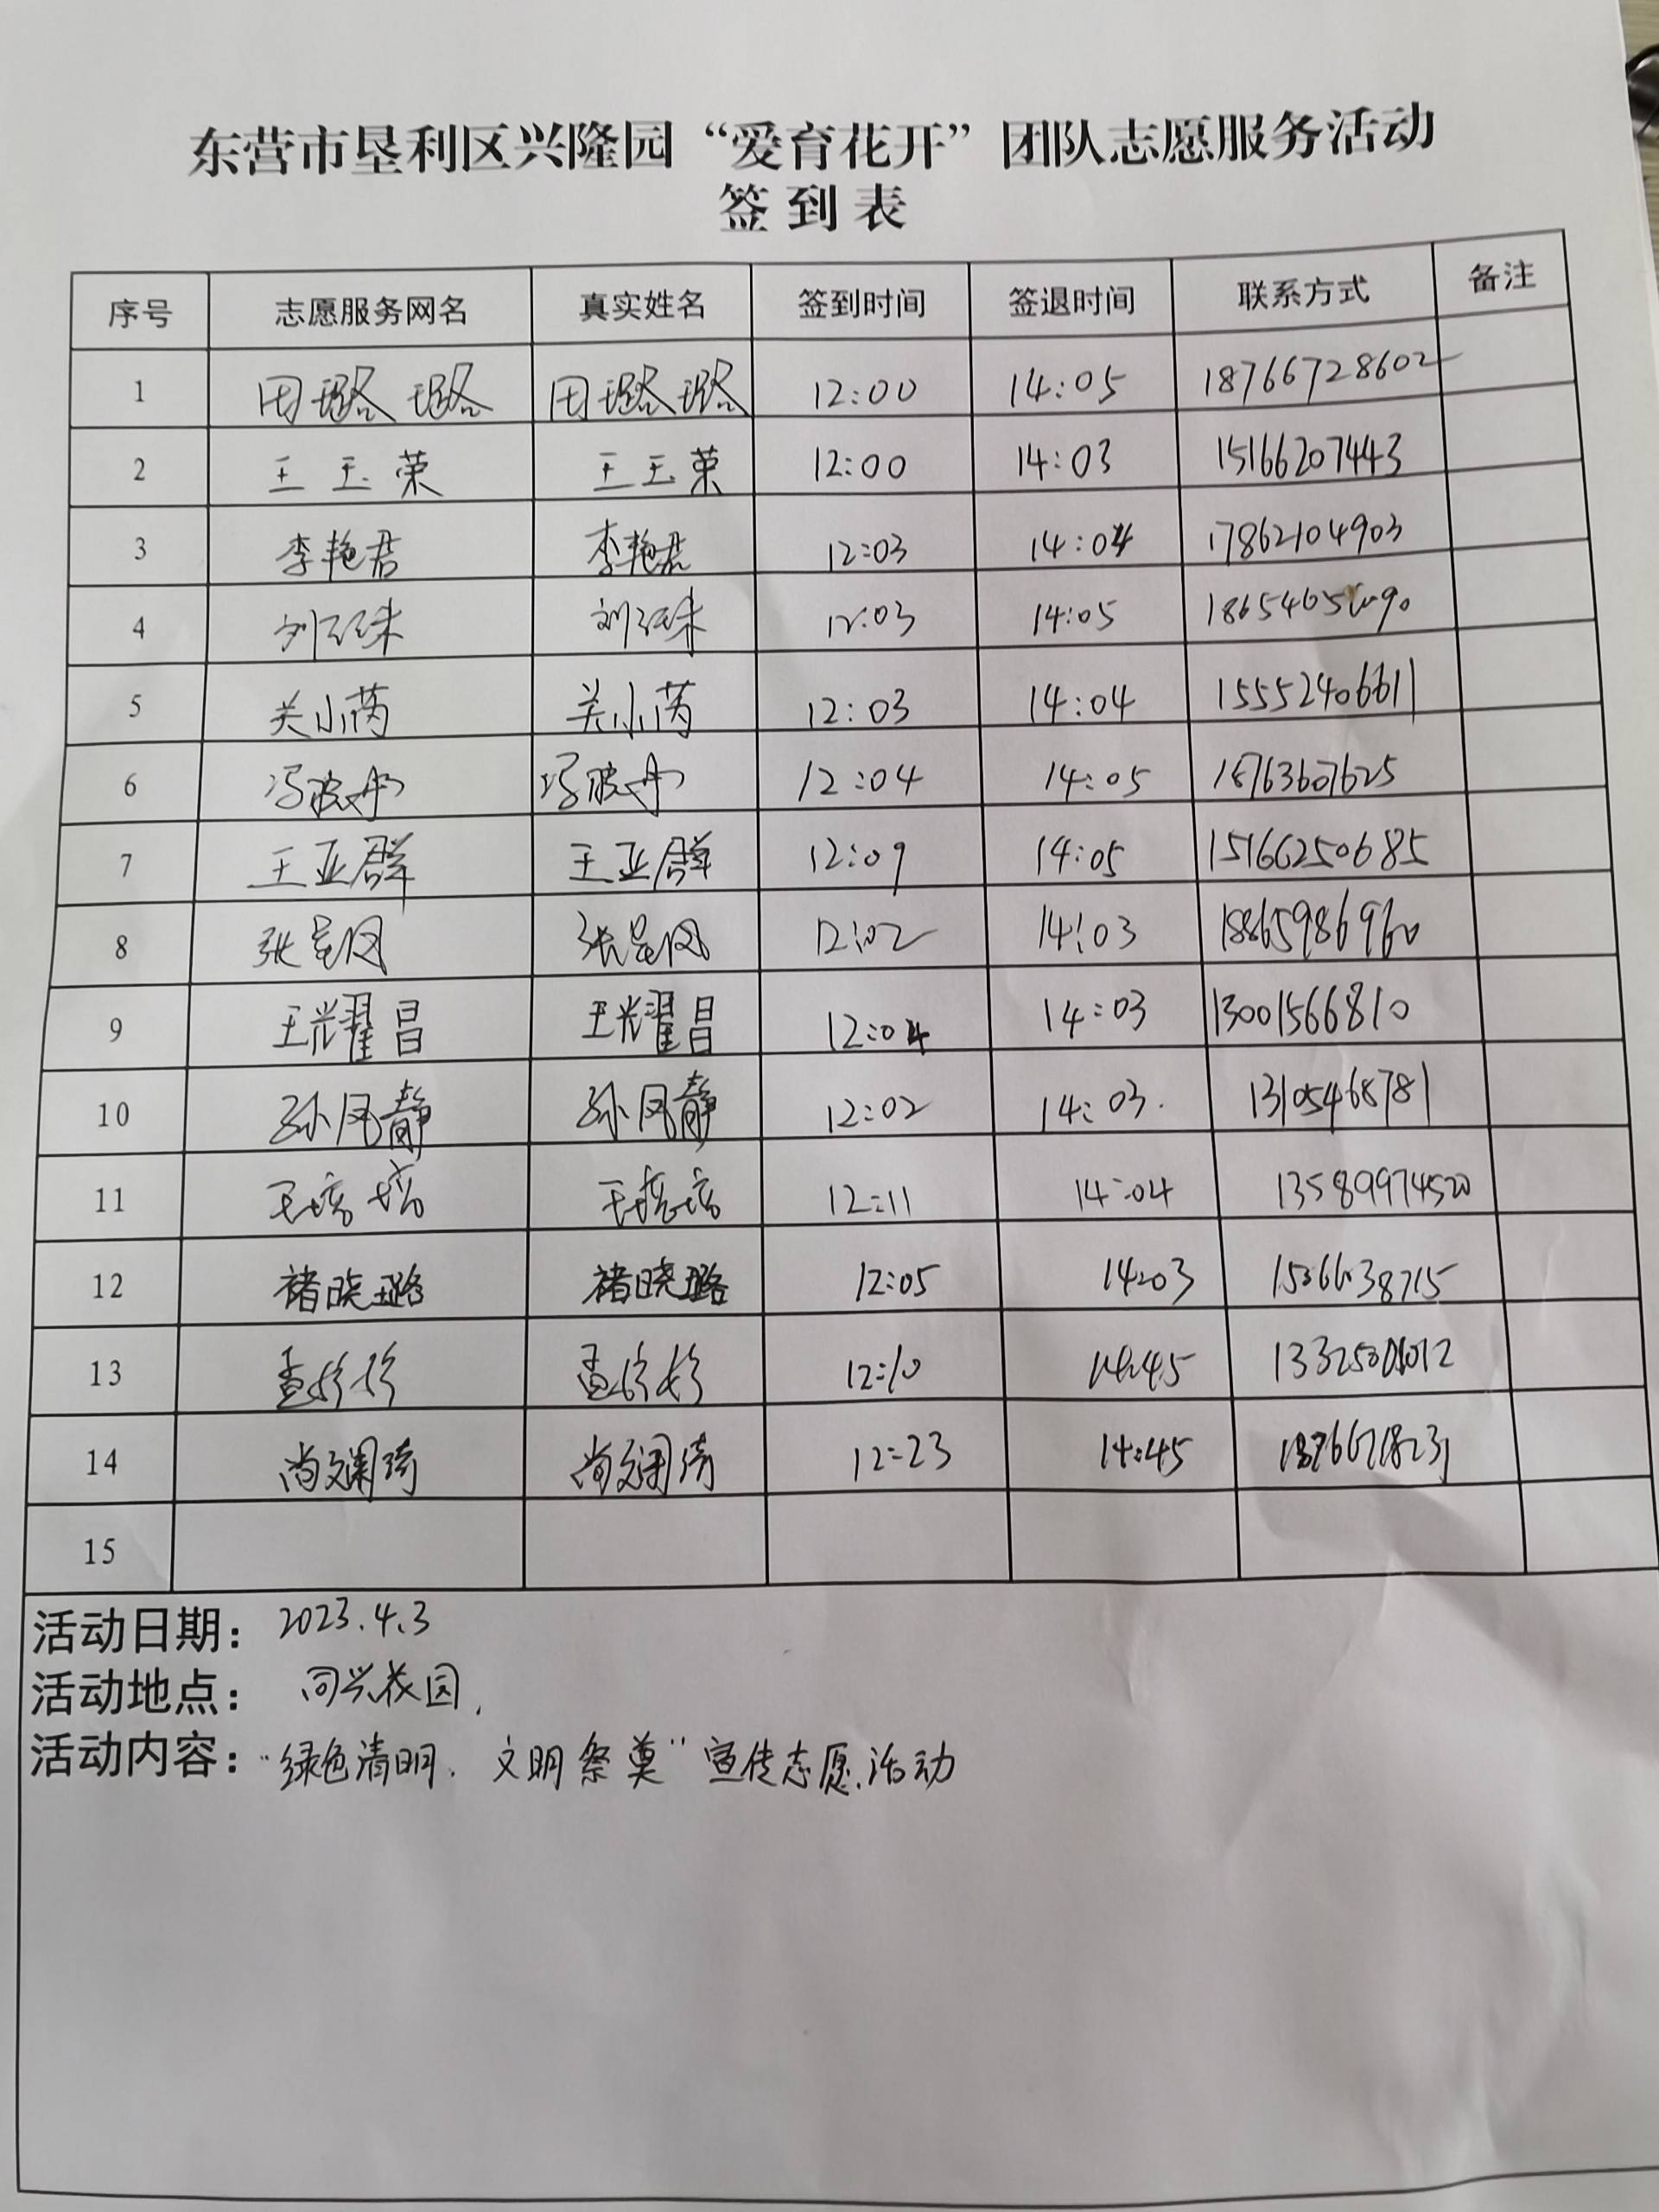 东营市垦利区兴隆园“爱育花开”团队志愿服务活动
签到表
序号 志愿服务网名 真实姓名 签到时间 签退时间 联系方式 备注
1 田璐璐 田璐璐 12:00 14:05 18766728602
2 王玉荣 王玉荣 12:00 14:03 15166207443
3 李艳君 李艳君 12:03 14:04 17862104903
4 刘红珠 刘红珠 12:03 14:05
5 关小芮 关小芮 12:03 14:04 15552406611
6 冯波丹 冯波丹 12:04 14:05 18763607625
7 王亚群 王亚群 12:09 14:05 15166250685
8 张昱风 张昱风 12:02 14:03 18865986960
9 王耀昌 王耀昌 12:04 14:03 13001566810
10 孙风静 孙风静 12:02 14:03. 13105468781
11 王培培 王培培 12:11 14:04 13589974520
12 褚晓璐 褚晓璐 12:05 14:03
13 12:10 14:45
14 尚文澜琦 尚文澜琦 12:23 14:45
15
活动日期：2023.4.3
活动地点：同兴花园.
活动内容：“绿色清明.文明祭奠”宣传志愿活动